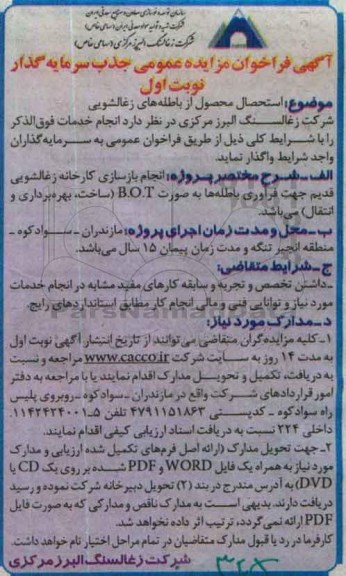 سازمان توسعه و نوسازی معادن و صنایع معدنی ایران
شرکت تهیه و تولید مواد معدنی ایران (سهامی خاص)
شرکت زغالسنگ البرز مرکزی (سهامی خاص)
آگهی فراخوان مزایده عمومی جذب سرمایه گذار
نوبت اول
موضوع: استحصال محصول از باطله‌های زغالشویی
شرکت زغالسنگ البرز مرکزی در نظر دارد انجام خدمات فوق‌الذکر
را با شرایط کلی ذیل از طریق فراخوان عمومی به سرمایه‌گذاران
واجد شرایط واگذار نماید.
الف_شرح مختصر پروژه: انجام بازسازی کارخانه زغالشویی
قدیم جهت فرآوری باطله‌ها به صورت B.O.T (ساخت، بهره‌برداری و
انتقال) می‌باشد.
ب_محل و مدت زمان اجرای پروژه: مازندران _ سوادکوه _
منطقه انجیر تنگه و مدت زمان پیمان ۱۵ سال می‌باشد.
ج_شرایط متقاضی:
_داشتن تخصص و تجربه و سابقه کارهای مفید مشابه در انجام خدمات
مورد نیاز و توانایی فنی و مالی انجام کار مطابق استانداردهای رایج.
د_مدارک مورد نیاز:
۱_کلیه مزایده‌گران متقاضی می‌توانند از تاریخ انتشار آگهی نوبت اول
به مدت ۱۴ روز به سایت شرکت www.cacco.ir مراجعه و نسبت
به دریافت، تکمیل و تحویل مدارک اقدام نمایند یا با مراجعه به دفتر
امور قراردادهای شرکت واقع در مازندران _ سوادکوه _ روبروی پلیس
راه سوادکوه _ کدپستی ۴۷۹۱۱۵۱۸۶۳ تلفن ۵_۰۱۱۴۲۴۲۴۰۰۱
داخلی ۲۲۴ نسبت به دریافت اسناد ارزیابی کیفی اقدام نمایند.
۲_جهت تحویل مدارک (ارائه اصل فرم‌های تکمیل شده ارزیابی و مدارک
مورد نیاز به همراه یک فایل WORD و PDF شده بر روی یک CD یا
DVD) به آدرس مندرج در بند (۲) تحویل دبیرخانه شرکت نموده و رسید
دریافت دارند. بدیهی است به مدارک ناقص و مدارکی که به صورت فایل
PDF ارائه نمی‌گردد، ترتیب اثر داده نخواهد شد.
کارفرما در رد یا قبول مدارک متقاضیان در تمام مراحل اختیار تام خواهد داشت.
شرکت زغالسنگ البرز مرکزی